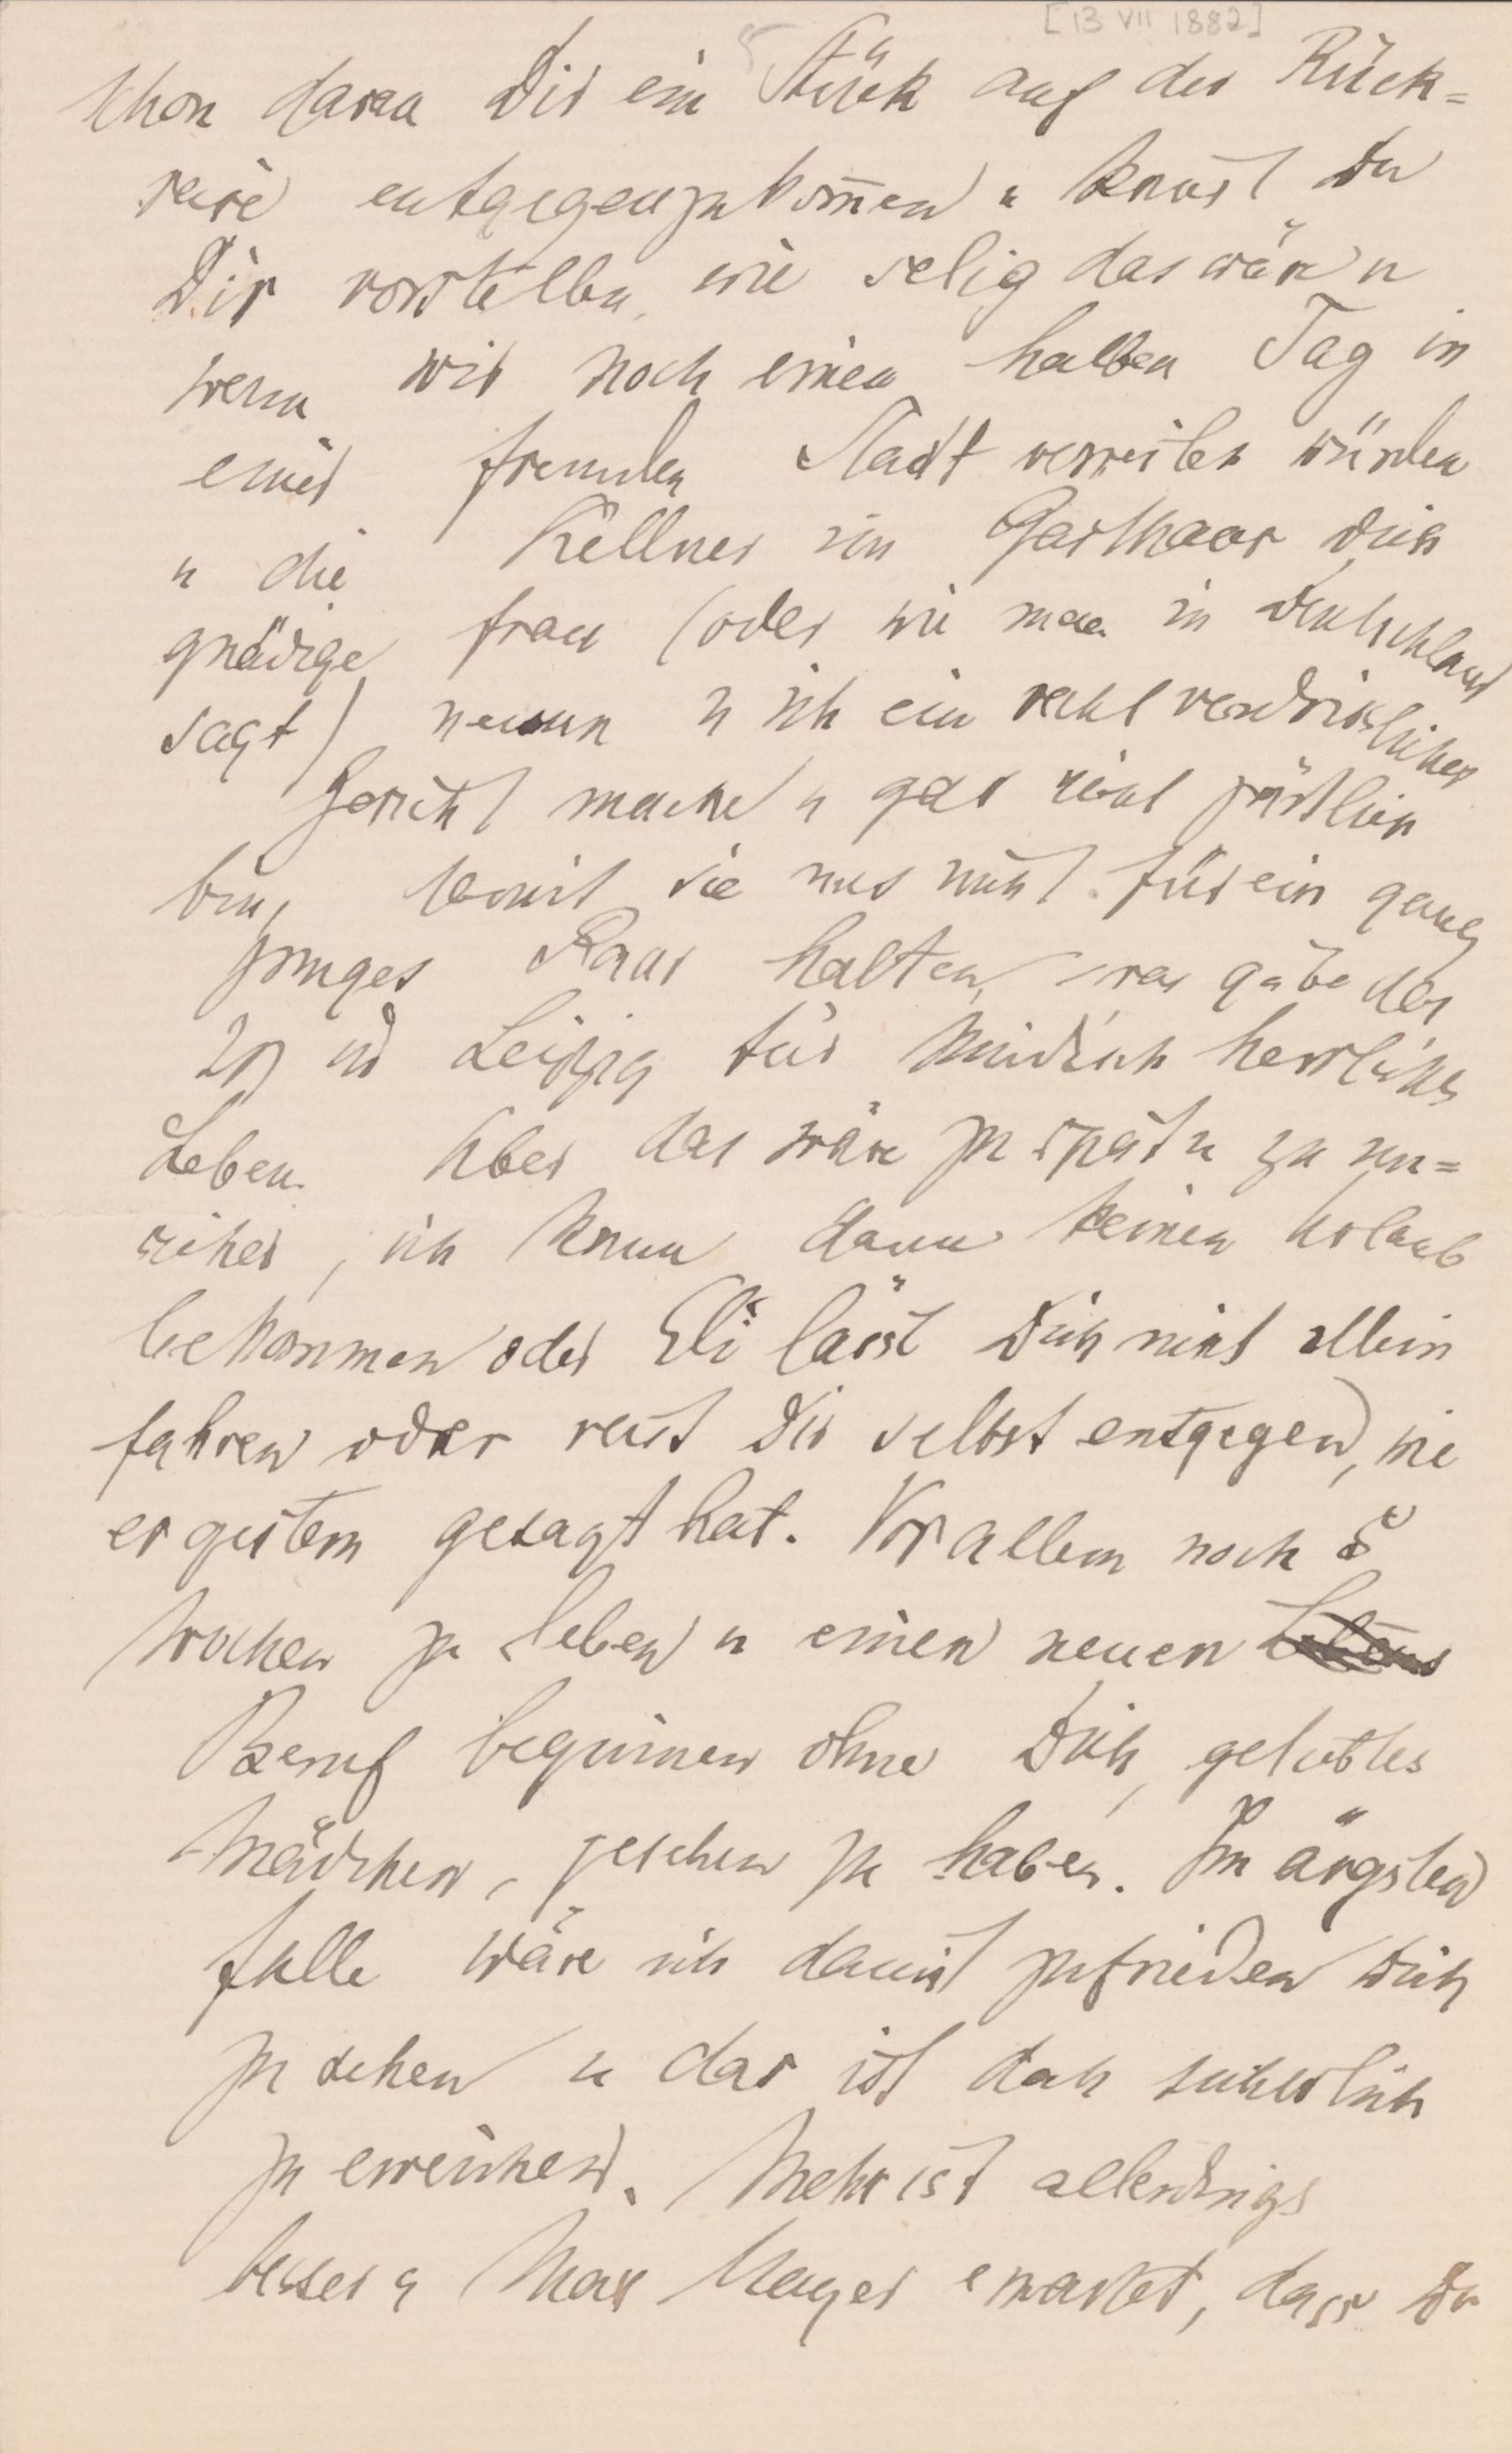 [13 VII 1882]
5
schon daran Dir ein Stück auf der Rück=
reise entgegenzukommen u kannst Du
Dir vorstellen, wie selig das wäre u
wenn wir noch einen halben Tag in
einer fremden Stadt verweilen würden
u die Kellner im Gasthaus Dich
gnädige Frau (oder wie man in Deutschland
sagt) nennen u ich ein recht verdrießliches
Gesicht mache u gar nicht zärtlich
bin, damit sie uns nicht für ein ganz
junges Paar halten, was gäbe das
in Leipzig für Mündich herrliches
Leben. Aber das wäre zu spät u zu un=
sicher, ich kann dann keinen Urlaub
bekommen oder Eli lässt Dich nicht allein
fahren oder reist Dir selbst entgegen, wie
er gestern gesagt hat. Vor allem noch 8
Wochen zu leben u einen neuen Lebens
Beruf beginnen ohne Dich, geliebtes
Mädchen, gesehen zu haben. Im ärgsten
Falle wäre ich damit zufrieden Dich
zu sehen u das ist doch sicherlich
zu erreichen. Mehr ist allerdings
besser u Max Mayer erwartet, dass Du